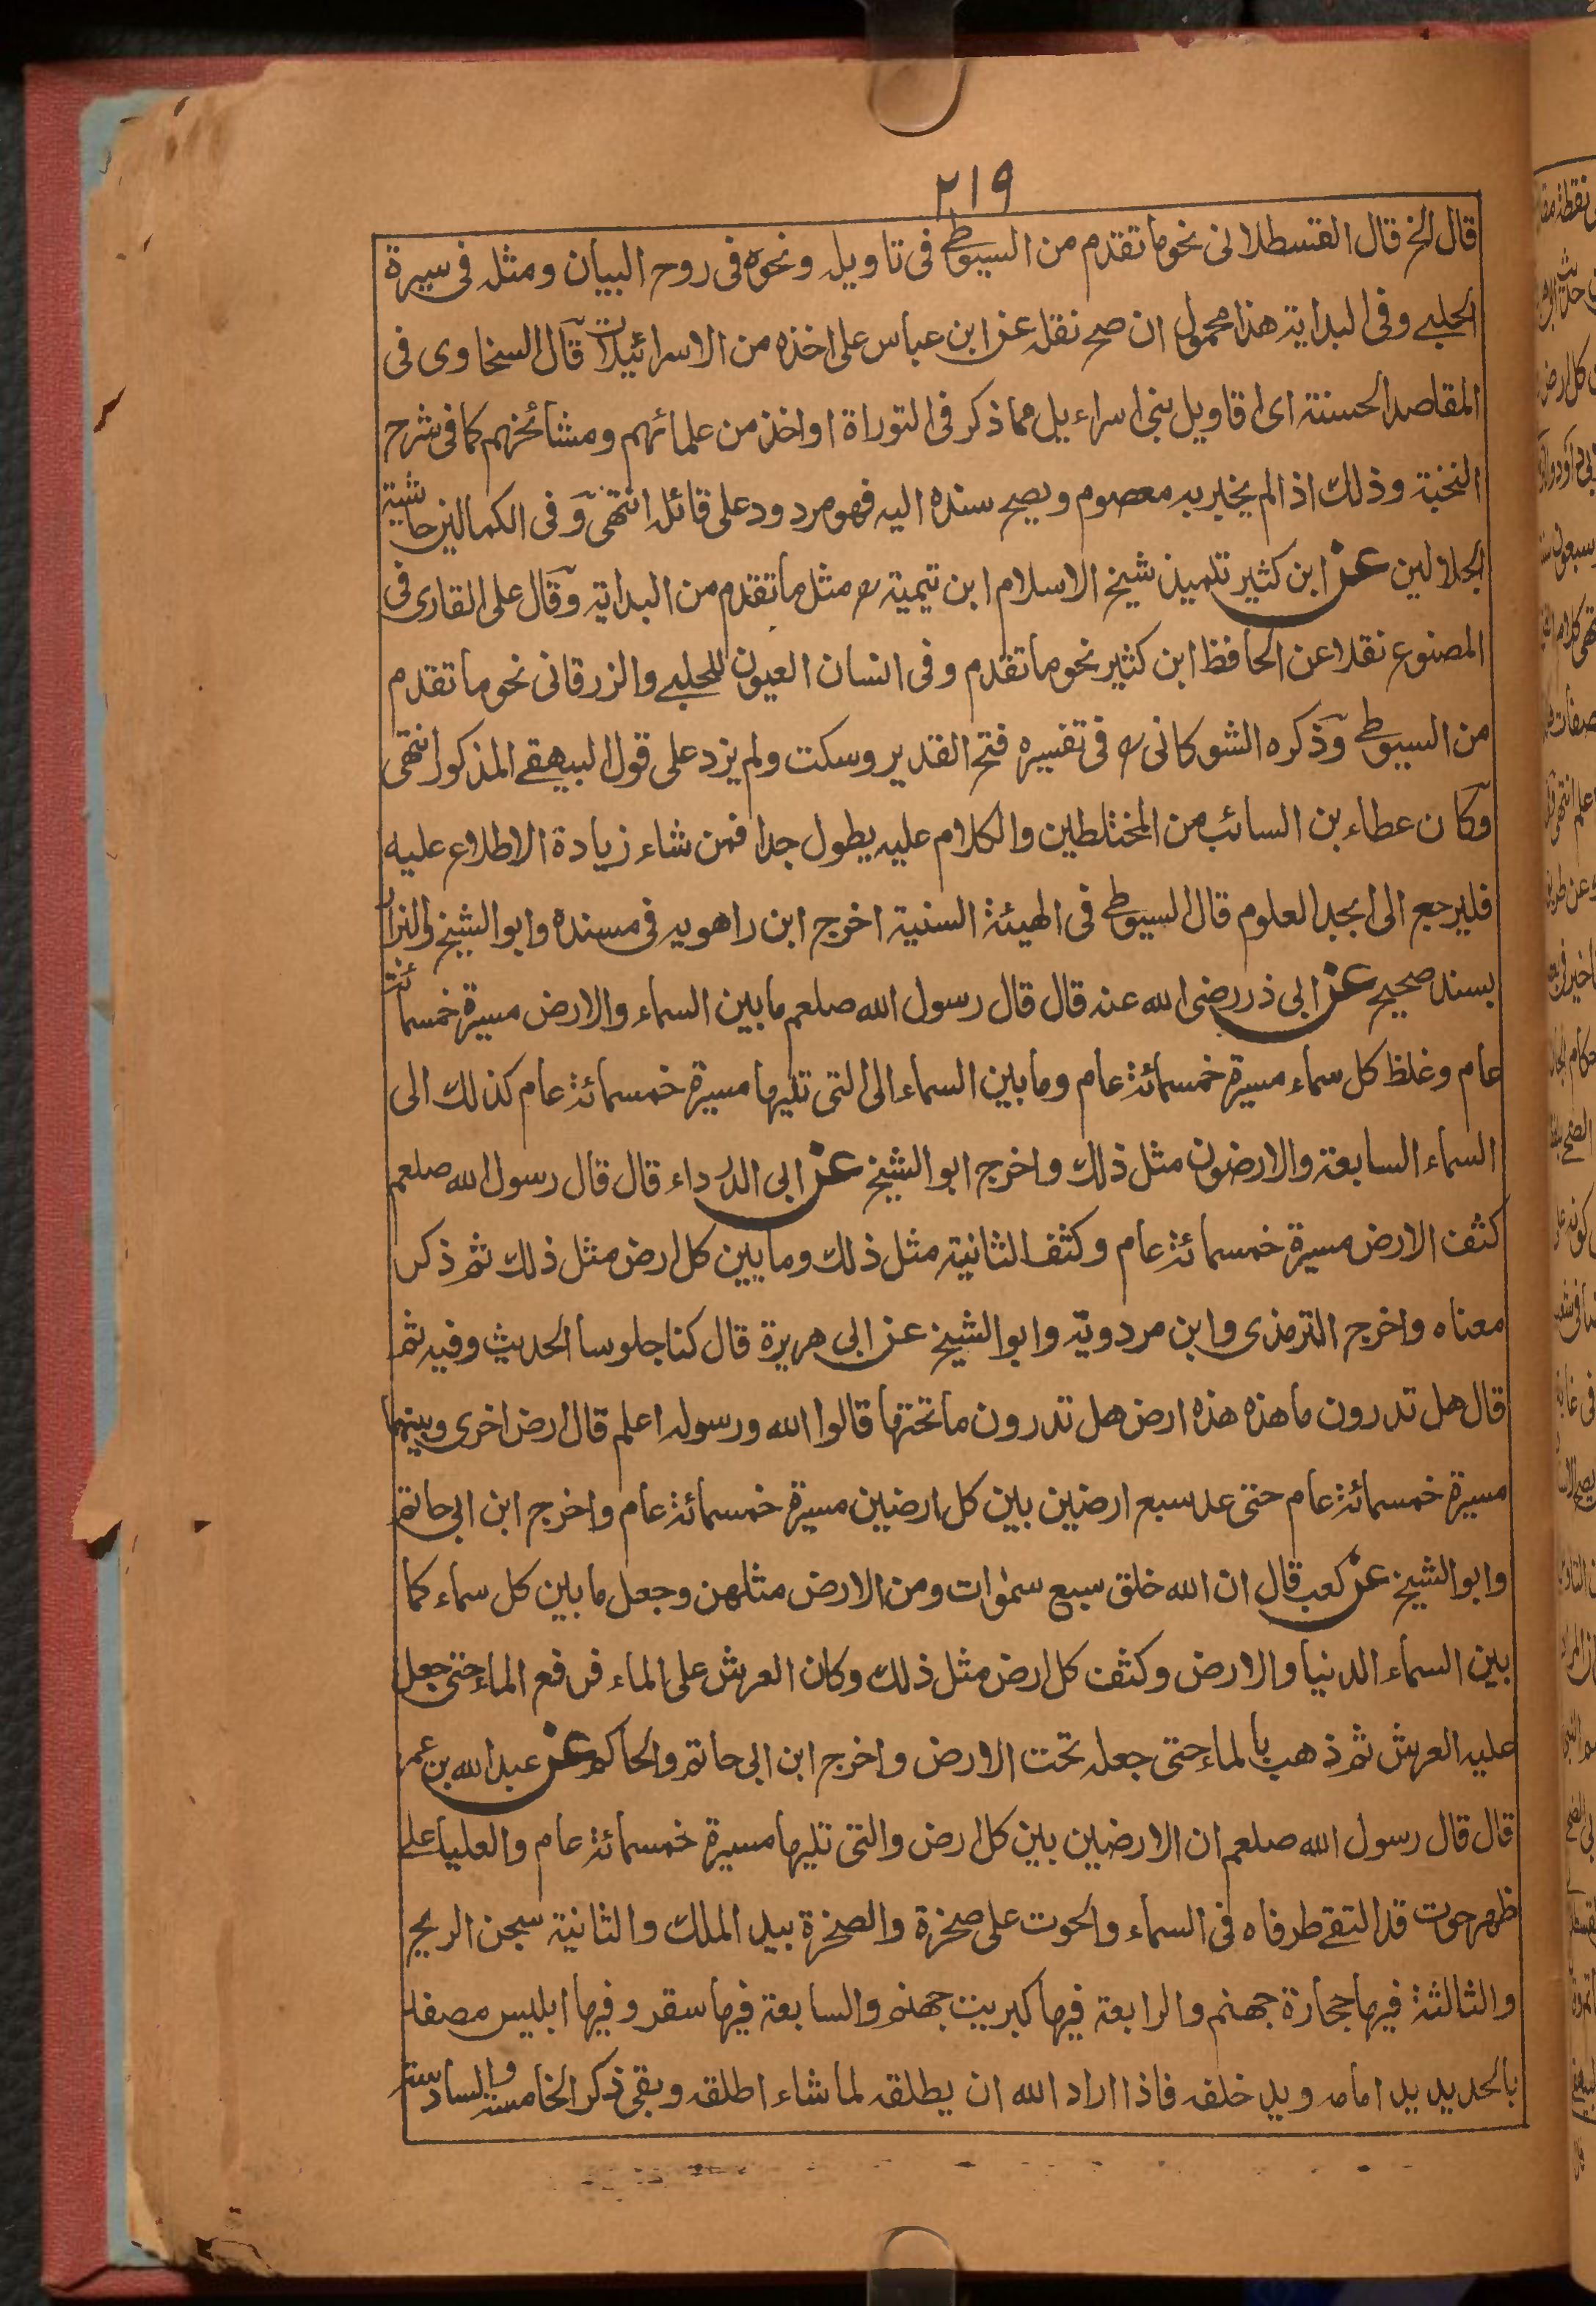 ٢١٩
قال الخ قال القسطلانى نحو ما تقدم من السيوطے فى تاويله ونحوه فى روح البيان ومثله فى سيرة
الحلبے وفى البداية هذا محمول ان صح نقله عن ابن عباس على اخذه من الاسرائيليات قال السخاوى فى
المقاصد الحسنة اى اقاويل بنى اسراءيل مما ذكر فى التوراة او اخذ من علمائهم ومشائخهم كما فى شرح
النخبة وذلك اذ الم يخبر به معصوم ويصح سنده اليه فهو مردود على قائله انتهى وفى الكمالين حاشية
الجلالين عن ابن كثير تلميذ شيخ الاسلام ابن تيمية رح مثل ما تقدم من البداية وقال على القارى فى
المصنوع نقلا عن الحافظ ابن كثير نحو ما تقدم وفى انسان العيون للحلبے والزرقانى نحو ما تقدم
من السيوطے وذكره الشوكانى رح فى تفسيره فتح القدير وسكت ولم يزد على قول البيهقے المذكور انتهى
وكان عطاء بن السائب من المختلطين والكلام عليه يطول جدا فمن شاء زيادة الاطلاع عليه
فليرجع الى ابجد العلوم قال السيوطے فى الهيئة السنية اخرج ابن راهويه فى مسنده وابو الشيخ والبزار
بسند صحيح عن ابى ذر رضى الله عنه قال قال رسول الله صلعم ما بين السماء والارض مسيرة خمسمائة
عام وغلظ كل سماء مسيرة خمسمائة عام وما بين السماء الى التى تليها مسيرة خمسمائة عام كذلك الى
السماء السابعة والارضون مثل ذلك واخرج ابو الشيخ عن ابى الدرداء قال قال رسول الله صلعم
كثف الارض مسيرة خمسمائة عام وكثف الثانية مثل ذلك وما بين كل ارض مثل ذلك ثم ذكر
معناه واخرج الترمذى وابن مردويه وابو الشيخ عن ابى هريرة قال كنا جلوسا الحديث وفيه ثم
قال هل تدرون ما هذه هذه ارض هل تدرون ما تحتها قالوا الله ورسوله اعلم قال ارض اخرى وبينهما
مسيرة خمسمائة عام حتى عد سبع ارضين بين كل ارضين مسيرة خمسمائة عام واخرج ابن ابى حاتم
وابو الشيخ عن كعب قال ان الله خلق سبع سمٰوات ومن الارض مثلهن وجعل ما بين كل سماء كما
بين السماء الدنيا والارض وكثف كل ارض مثل ذلك وكان العرش على الماء فرفع الماء حتى جعل
عليه العرش ثم ذهب بالماء حتى جعله تحت الارض واخرج ابن ابى حاتم والحاكم عن عبد الله بن عمر
قال قال رسول الله صلعم ان الارضين بين كل ارض والتى تليها مسيرة خمسمائة عام والعليا على
ظهر حوت قد التقے طرفاه فى السماء والحوت على صخرة والصخرة بيد الملك والثانية سجن الريح
والثالثة فيها حجارة جهنم والرابعة فيها كبريت جهنم والسابعة فيها سقر وفيها ابليس مصفد
بالحديد يد امامه ويد خلفه فاذا اراد الله ان يطلقه لما شاء اطلقه وبقى ذكر الخامسة والسادسة